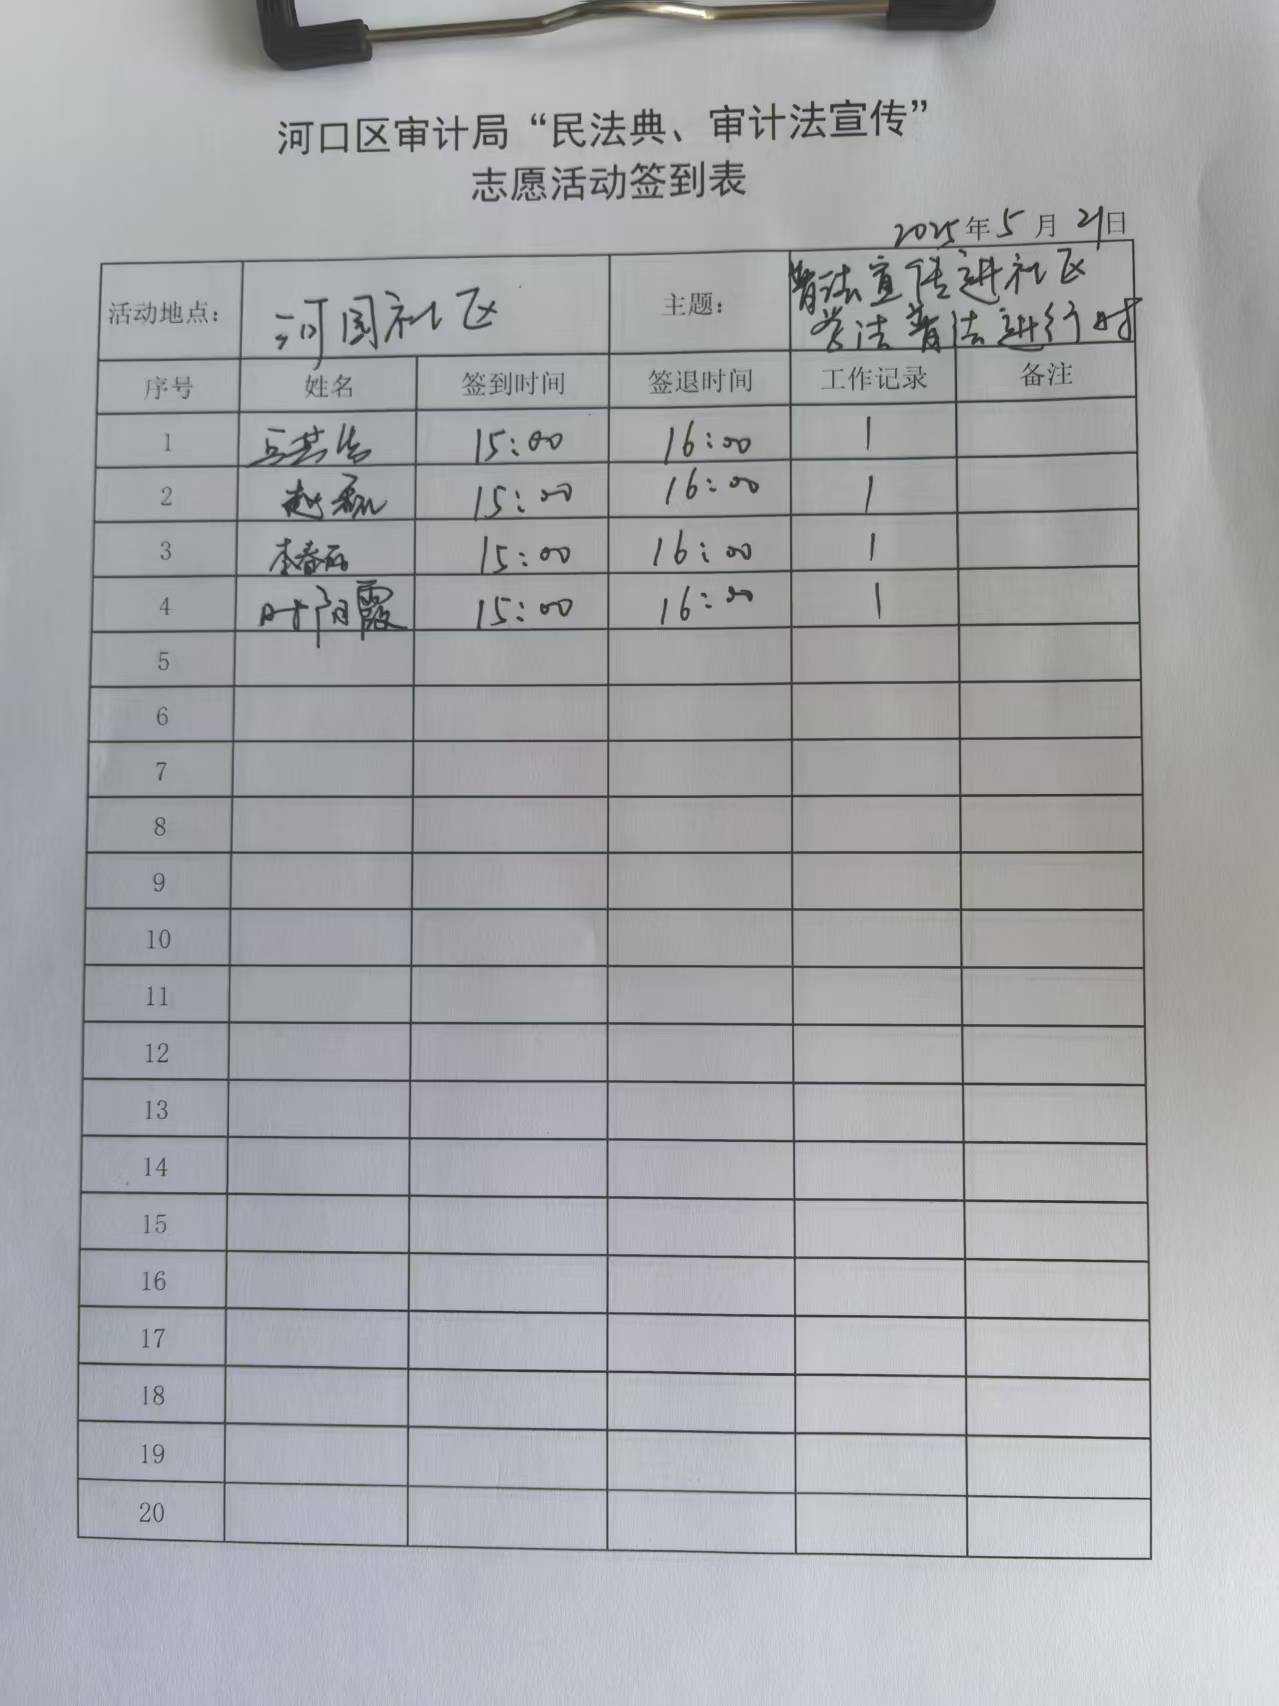 河口区审计局“民法典、审计法宣传”
志愿活动签到表
2025年5月21日
活动地点： 河园社区 主题： 普法宣传进社区
学法普法进行时
序号 姓名 签到时间 签退时间 工作记录 备注
1 15:00 16:00 1
2 赵磊 15:00 16:00 1
3 李春 15:00 16:00 1
4 时阳霞 15:00 16:00 1
5
6
7
8
9
10
11
12
13
14
15
16
17
18
19
20